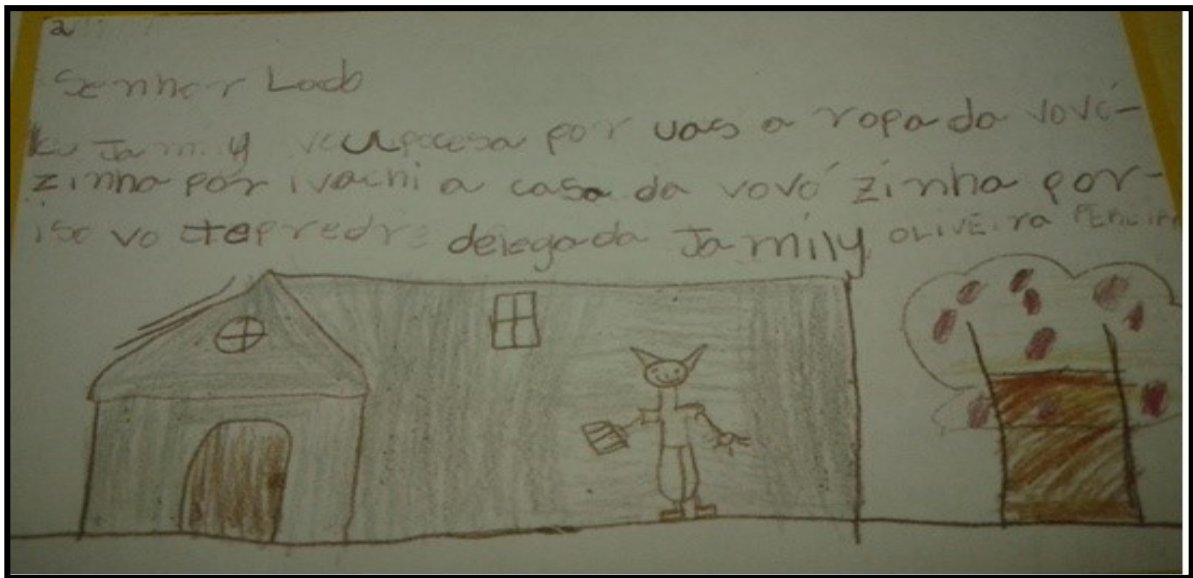 a
Senhor Lodo
Eu Jamily por uas a ropa da vovó-
zinha por ivachi a casa da vovó zinha por-
iso vo tepredre delegada Jamily OLIVEIRA